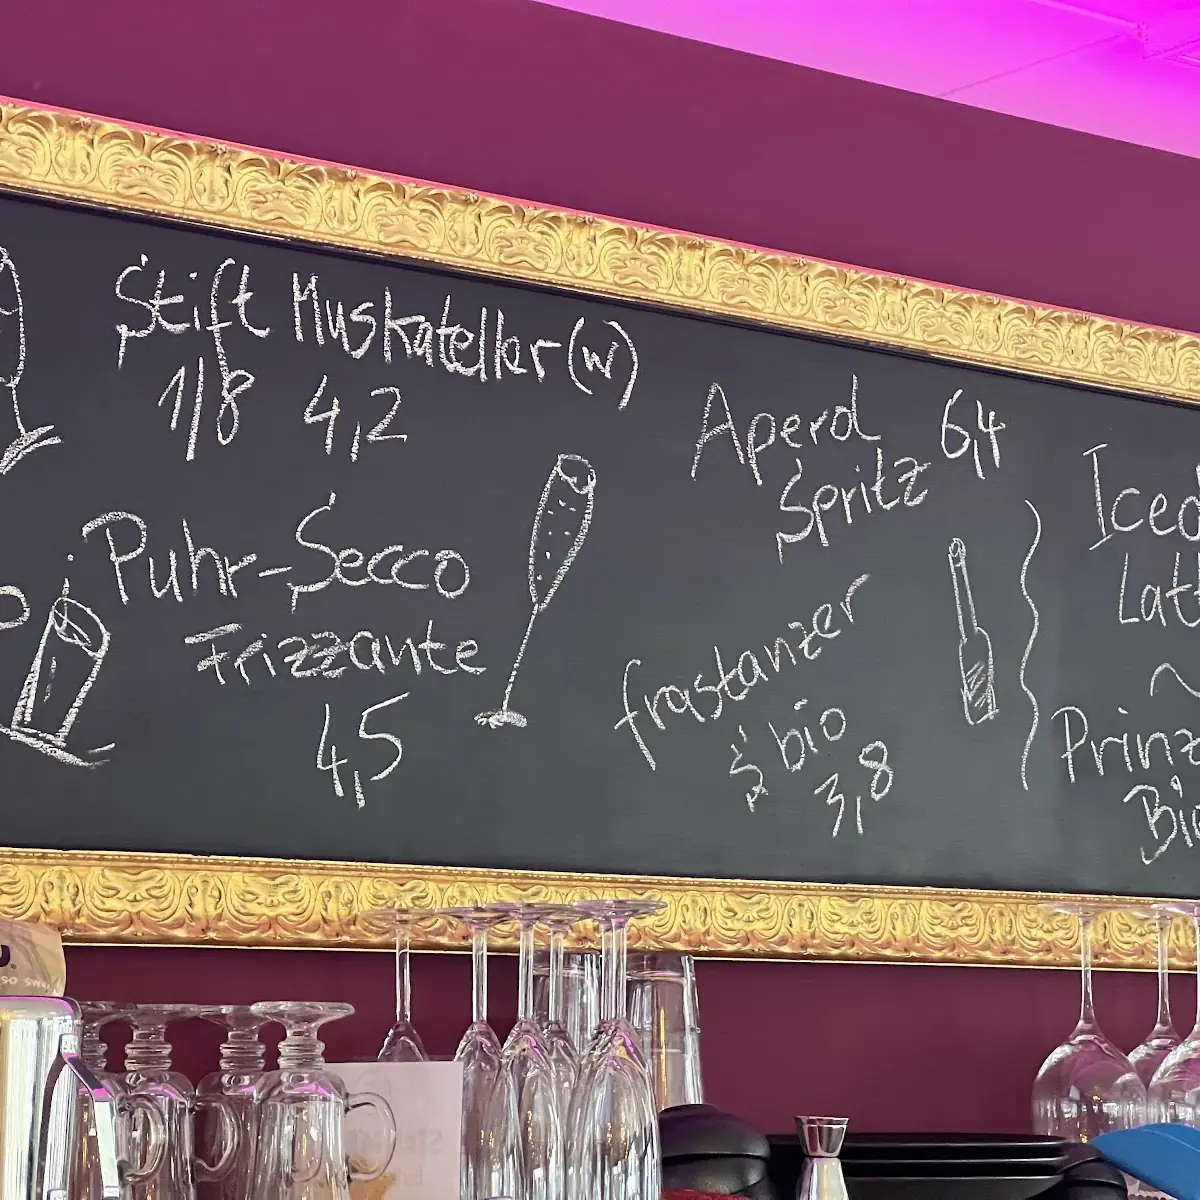 Stift Muskateller (w)
1/8 4,2
Puhr-Secco
Frizzante
4,5
Aperol 6,4
Spritz
frastanzer
s' bio
3,8
Iced
Latt
Prinz
Bio